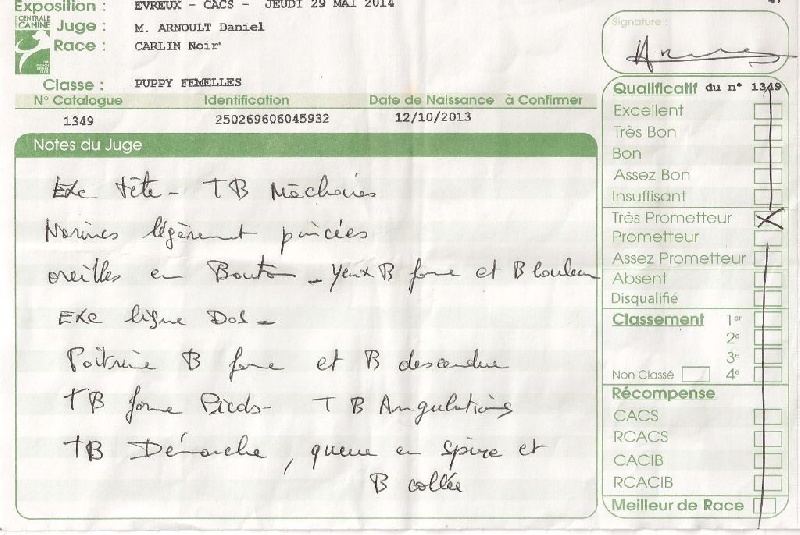 Exposition : EVREUX - CACS - JEUDI 29 MAI 2014
CENTRALE CANINE
Juge : M. ARNOULT Daniel
Race : CARLIN Noir
Classe : PUPPY FEMELLES
N° Catalogue Identification Date de Naissance à Confirmer
1349 250269606045932 12/10/2013
Notes du Juge
Exc tête - TB Mâchoires
Narines légèrement pincées
oreilles en Bouton - yeux B forme et B couleur
Exc ligne Dos -
Poitrine B forme et B descendue
TB forme Pieds - TB Angulations
TB Démarche, queue en spire et
B collée
Signature :
Qualificatif du n° 1349
Excellent
Très Bon
Bon
Assez Bon
Insuffisant
Très Prometteur X
Prometteur
Assez Prometteur
Absent
Disqualifié
Classement 1er
2e
3e
Non Classé 4e
Récompense
CACS
RCACS
CACIB
RCACIB
Meilleur de Race